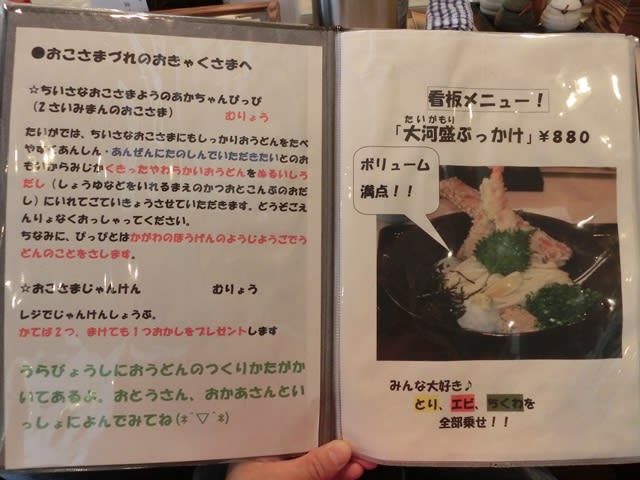 ●おこさまづれのおきゃくさまへ
☆ちいさなおこさまようのあかちゃんぴっぴ
(2さいみまんのおこさま) むりょう
たいがでは、ちいさなおこさまにもしっかりおうどんをたべ
やすくあんしん・あんぜんにたのしんでいただきたいとのお
もいからみじかくきったやわらかいおうどんをぬるいしろ
だし(しょうゆなどをいれるまえのかつおとこんぶのおだ
し)にいれてごていきょうさせていただきます。どうぞごえ
んりょなくおっしゃってください。
ちなみに、ぴっぴとはかがわのほうげんのようじようごでう
どんのことをさします。
☆おこさまじゃんけん むりょう
レジでじゃんけんしょうぶ。
かてば2つ、まけても1つおかしをプレゼントします
うらびょうしにおうどんのつくりかたがか
いてあるよ。おとうさん、おかあさんとい
っしょによんでみてね(*´▽`*)
看板メニュー！
たいがもり
「大河盛ぶっかけ」¥880
ボリューム
満点！！
みんな大好き♪
とり、エビ、ちくわを
全部乗せ！！